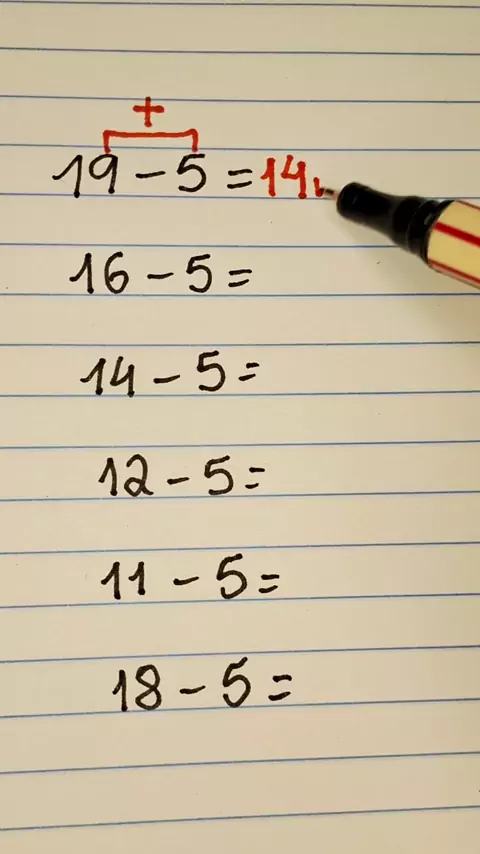 +
19 - 5 = 14
16 - 5 =
14 - 5 =
12 - 5 =
11 - 5 =
18 - 5 =